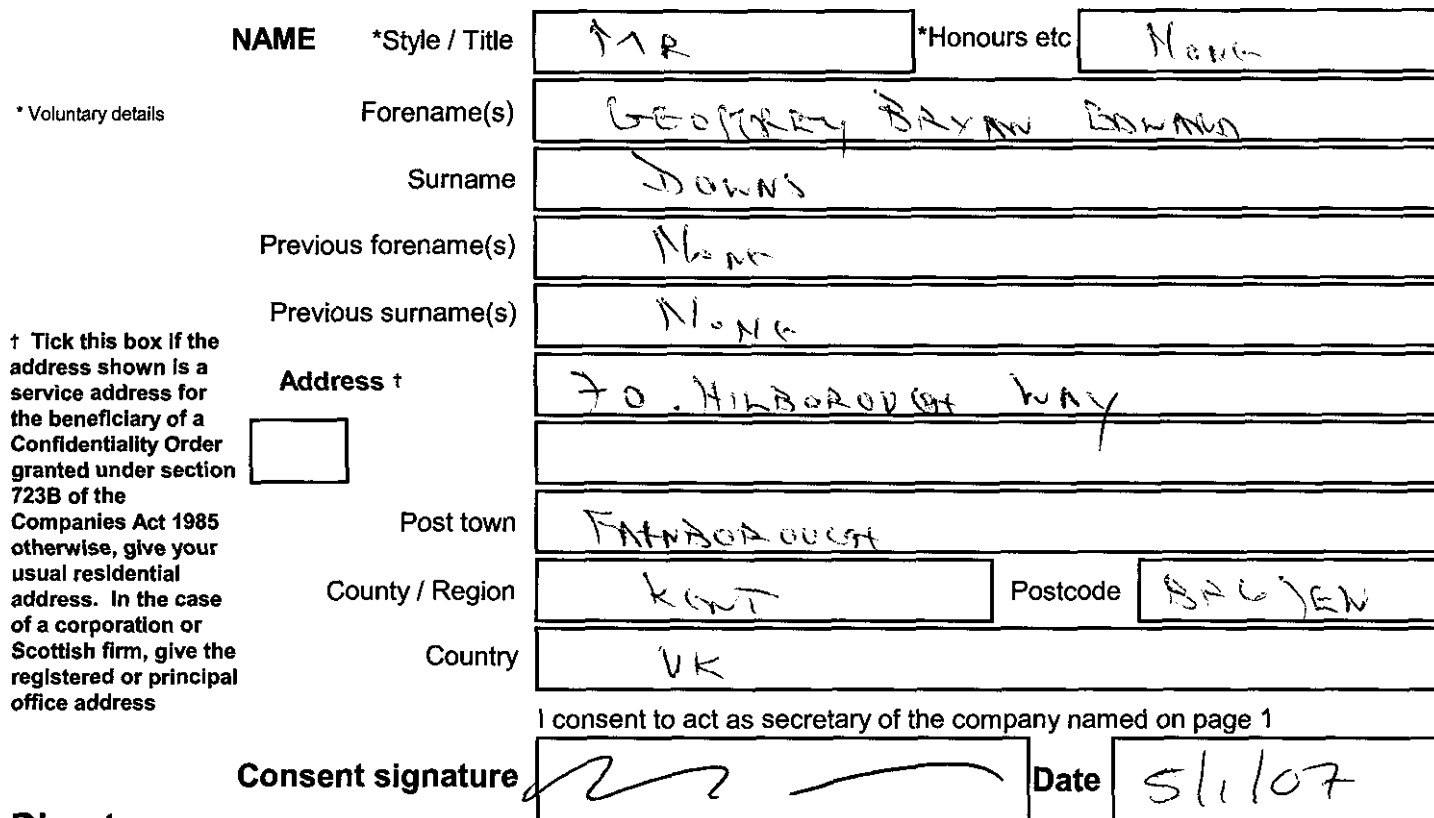 NAME *Style / Title MR *Honours etc None
* Voluntary details Forename(s) GEOFFREY BRYAN EDWARD
Surname DOWNS
Previous forename(s) None
Previous surname(s) None
† Tick this box if the
address shown is a
service address for
the beneficiary of a
Confidentiality Order
granted under section
723B of the
Companies Act 1985
otherwise, give your
usual residential
address. In the case
of a corporation or
Scottish firm, give the
registered or principal
office address
Address † 70. HILBOROUGH WAY
Post town FARNBOROUGH
County / Region KENT Postcode BR6
Country UK
I consent to act as secretary of the company named on page 1
Consent signature Date 5/1/07